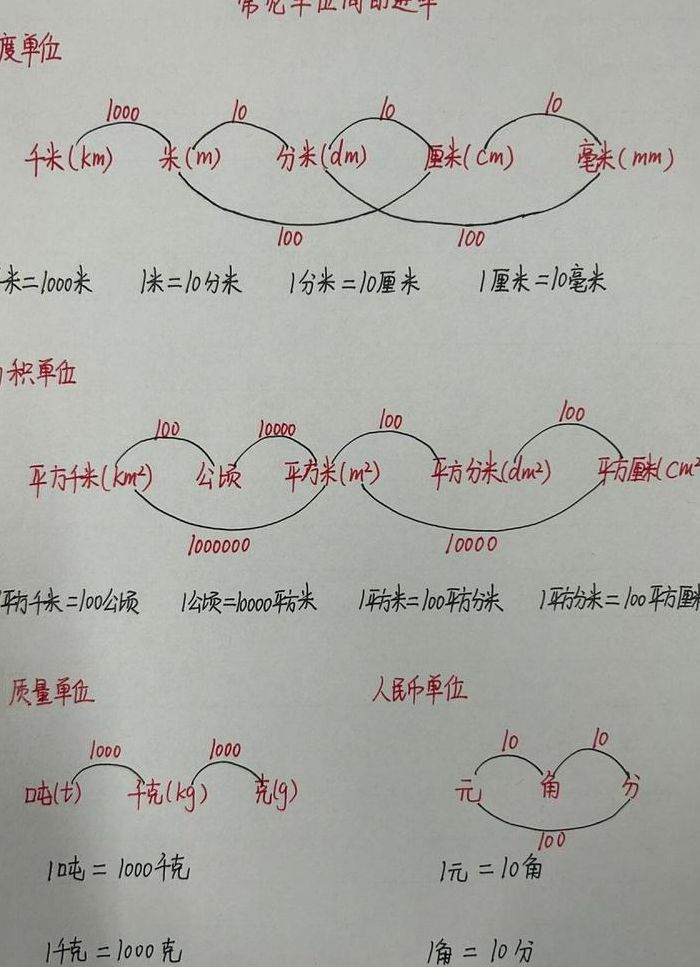 常见单位间的进率
度单位
1000 10 10 10
千米(km) 米(m) 分米(dm) 厘米(cm) 毫米(mm)
100 100
米=1000米 1米=10分米 1分米=10厘米 1厘米=10毫米
积单位
100 10000 100 100
平方千米(km²) 公顷 平方米(m²) 平方分米(dm²) 平方厘米(cm²
1000000 10000
1平方千米=100公顷 1公顷=10000平方米 1平方米=100平方分米 1平方分米=100平方厘米
质量单位 人民币单位
1000 1000 10 10
吨(t) 千克(kg) 克(g) 元 角 分
100
1吨=1000千克 1元=10角
1千克=1000克 1角=10分